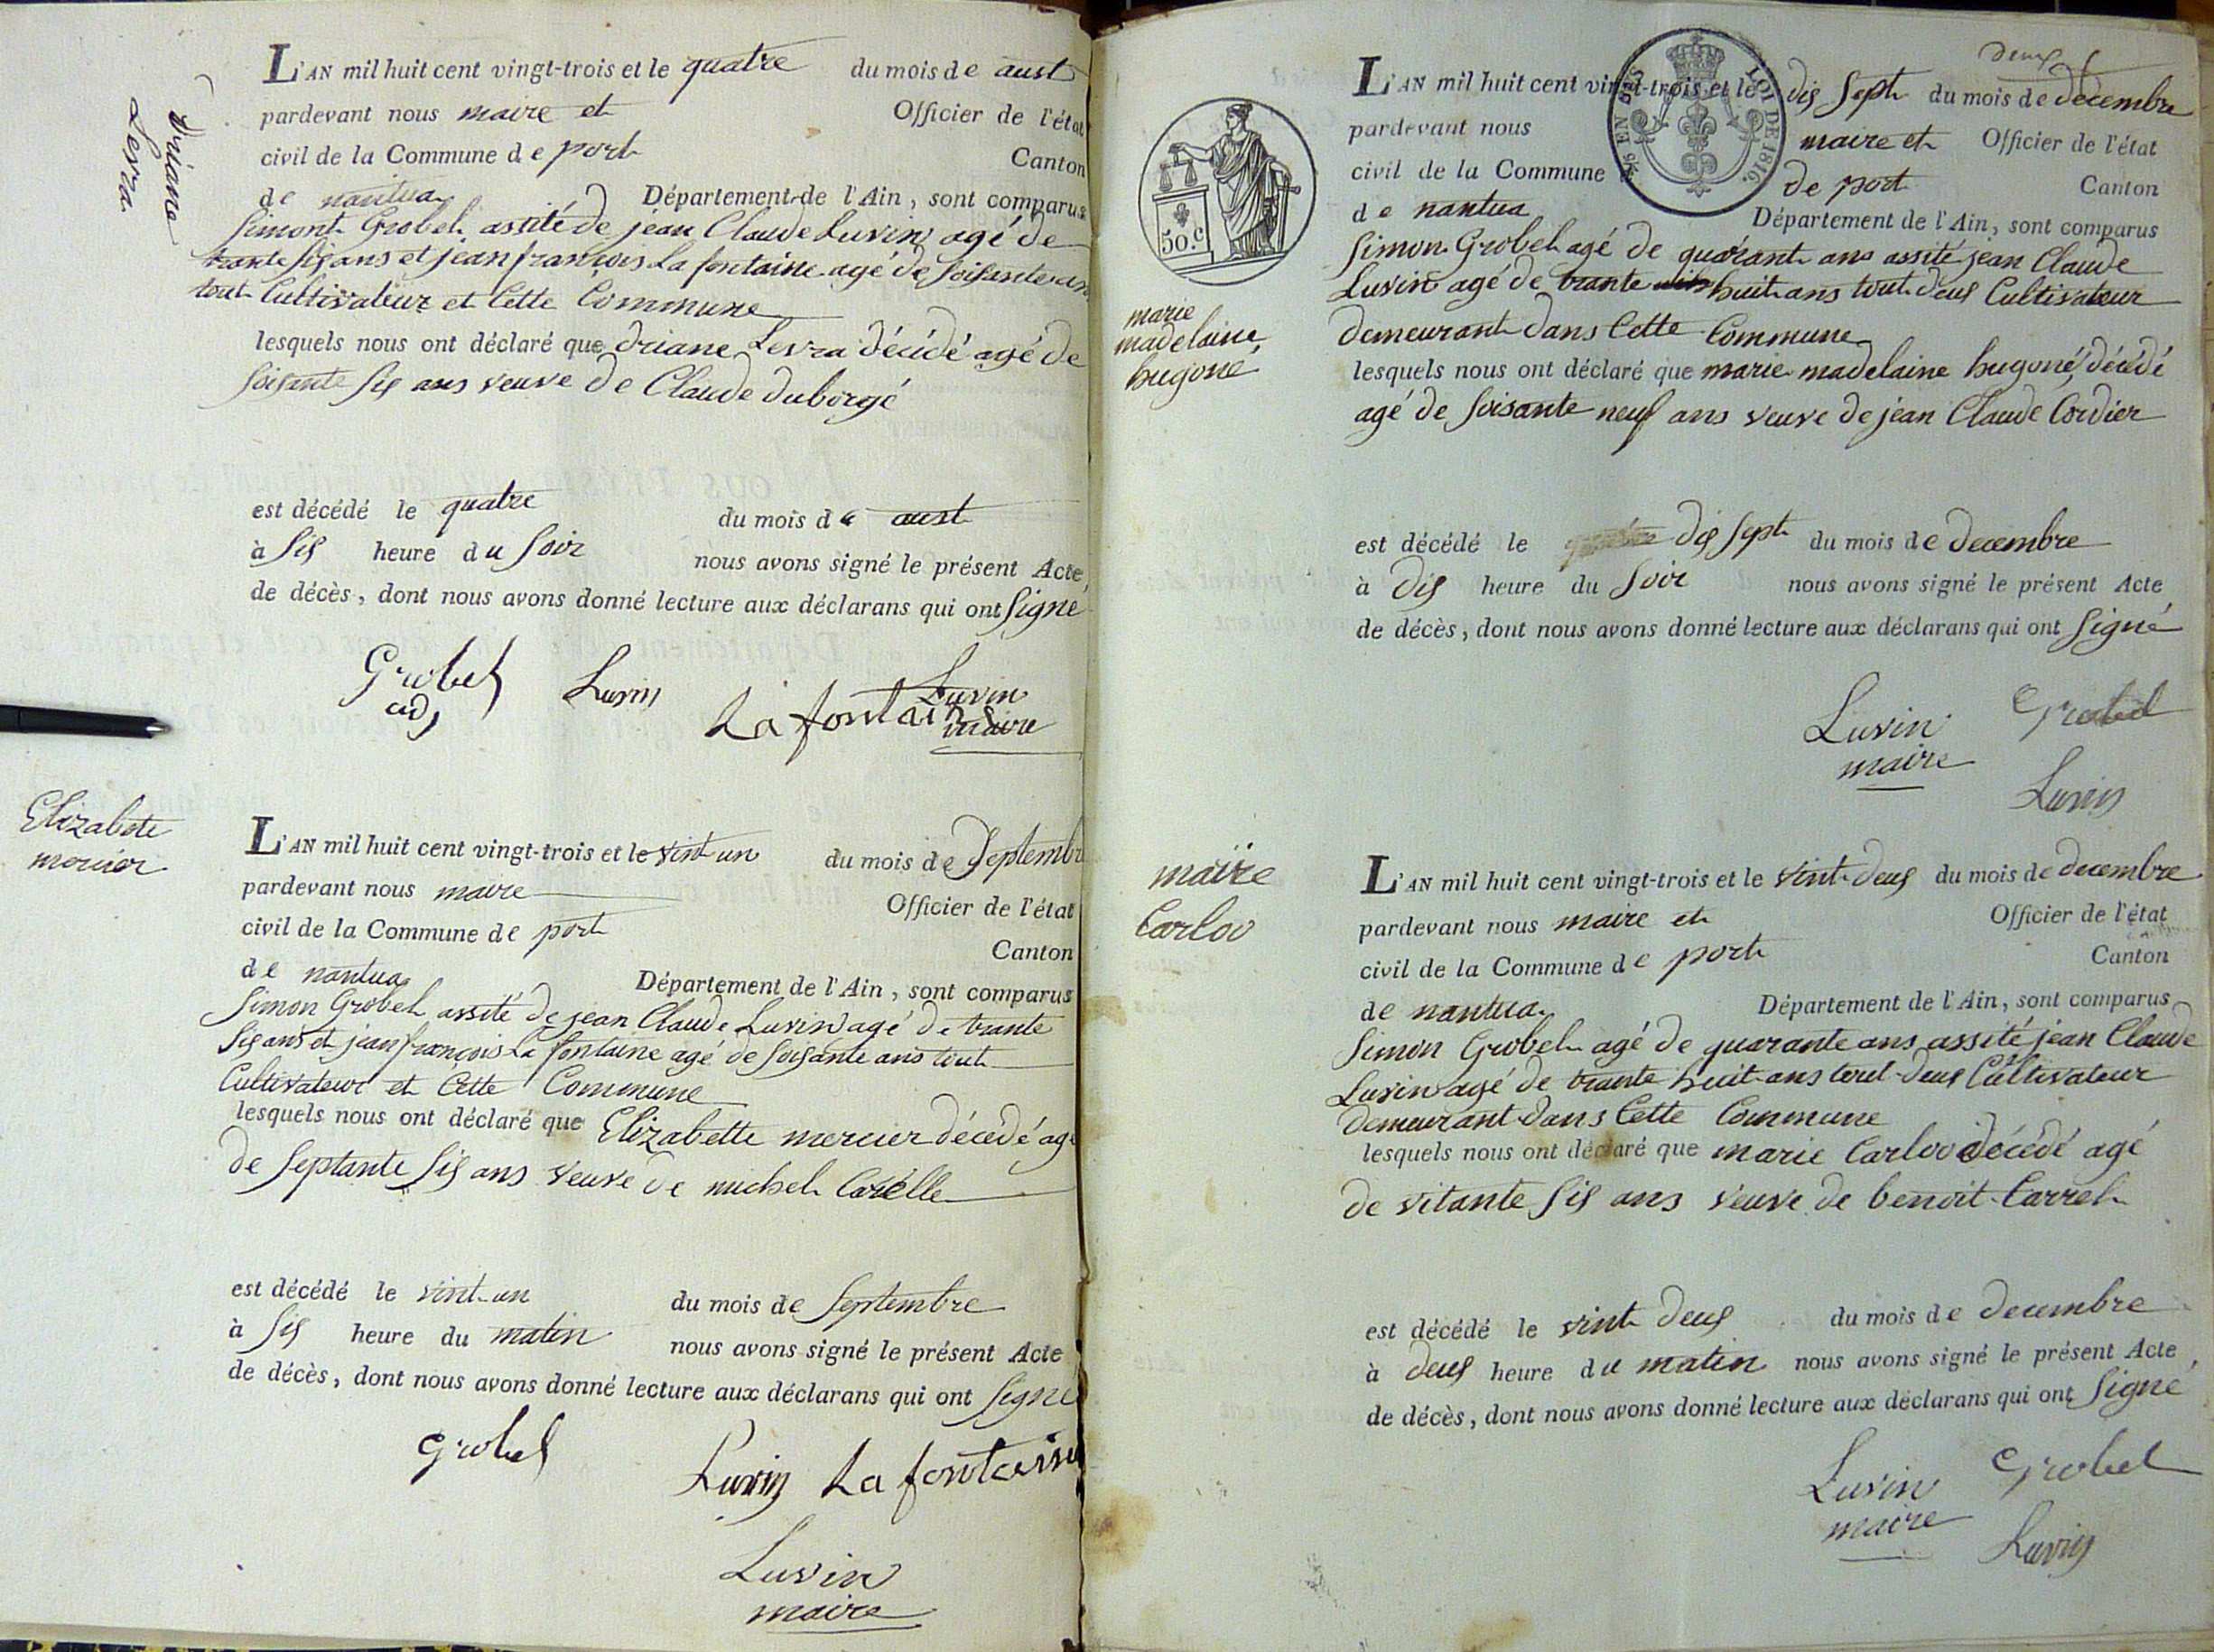 driane
Levra
L'AN mil huit cent vingt-trois et le quatre du mois de aust
pardevant nous maire et Officier de l'état
civil de la Commune de port Canton
de nantua Département de l'Ain, sont comparus
Simont Grobel assité de jean Claude Luvin agé de
trante sis ans et jean françois La fontaine agé de soisante an
tout Cultivateur et Cette Commune
lesquels nous ont déclaré que driane Levra décédé agé de
soisante sis ans veuve de Claude duborgé
est décédé le quatre du mois de aust
à sis heure du soir nous avons signé le présent Acte
de décès, dont nous avons donné lecture aux déclarans qui ont signé
Grobel Luvin La fontaine Luvin
adj maire
Elizabete
mercier
L'AN mil huit cent vingt-trois et le vint un du mois de Septembr
pardevant nous maire Officier de l'état
civil de la Commune de port Canton
de nantua Département de l'Ain, sont comparus
Simon Grobel assité de jean Claude Luvin agé de trante
sis ans et jean françois La fontaine agé de soisante ans tout
Cultivateur et Cette Commune
lesquels nous ont déclaré que Elizabette mercier décédé agé
de septante sis ans veuve de michel Carelle
est décédé le vint un du mois de Septembre
à sis heure du matin nous avons signé le présent Acte
de décès, dont nous avons donné lecture aux déclarans qui ont signé
Grobel Luvin La fontaine
Luvin
maire
LOI DE 1816.
50.c
marie
madelaine
hugoné
deus
L'AN mil huit cent vingt-trois et le dis sept du mois de decembre
pardevant nous maire et Officier de l'état
civil de la Commune de port Canton
de nantua Département de l'Ain, sont comparus
Simon Grobel agé de quarant ans assité jean Claude
Luvin agé de trante huit ans tout deus Cultivateur
demeurant dans Cette Commune
lesquels nous ont déclaré que marie madelaine hugoné, décédé
agé de soisante neuf ans veuve de jean Claude Cordier
est décédé le dis sept du mois de decembre
à dis heure du soir nous avons signé le présent Acte
de décès, dont nous avons donné lecture aux déclarans qui ont signé
Luvin Grobel
maire Luvin
maire
Carloo
L'AN mil huit cent vingt-trois et le vint deus du mois de decembre
pardevant nous maire et Officier de l'état
civil de la Commune de port Canton
de nantua Département de l'Ain, sont comparus
Simon Grobel agé de quarante ans assité jean Claude
Luvin agé de trante huit ans tout deus Cultivateur
demeurant dans Cette Commune
lesquels nous ont déclaré que marie Carloo décédé agé
de vitante sis ans veuve de benoit Carrel
est décédé le vint deus du mois de decembre
à deus heure du matin nous avons signé le présent Acte
de décès, dont nous avons donné lecture aux déclarans qui ont signé
Luvin Grobel
maire Luvin